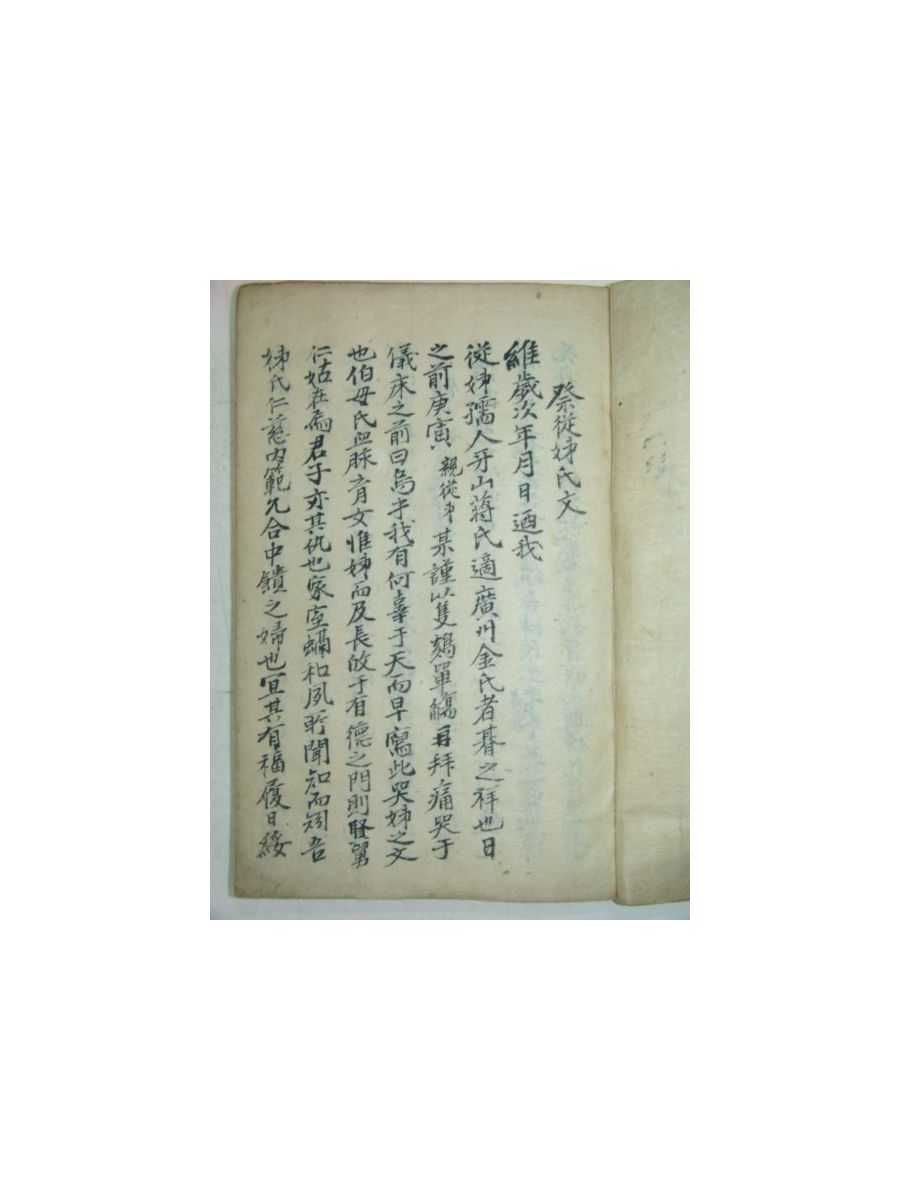 祭從姊氏文
維歲次年月日迺我
從姊孺人牙山蔣氏適廣州金氏者朞之祥也日
之前庚寅親從弟某謹以隻鷄單觴再拜痛哭于
儀床之前曰烏乎我有何辜于天而早寫此哭姊之文
也伯母氏血脉育女惟姊而及長故于有德之門則賢舅
仁姑在焉君子亦其仇也家室和夙所聞知而矧吾
姊氏仁慈內範允合中饋之婦也宜其有福履日綏